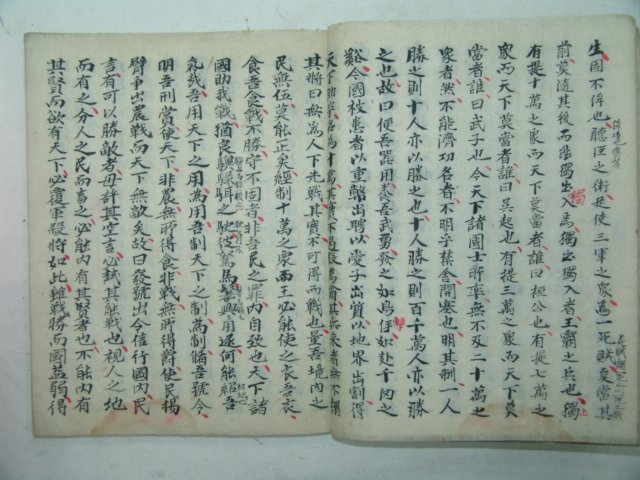 生固不侔也聽臣之術足使三軍之衆爲一死賊莫當其
前莫隨其後而能獨出入焉獨出獨入者王霸之兵也
有提十萬之衆而天下莫當者誰曰桓公也有提七萬之
衆而天下莫當者誰曰吳起也有提三萬之衆而天下莫
當者誰曰武子也今天下諸國士所率無不及二十萬之
衆者然不能濟功名者不明乎禁舍開塞也明其制一人
勝之則十人亦以勝之也十人勝之則百千萬人亦以勝
之也故曰便吾器用養吾武勇發之如鳥如赴千仞之
谿今國被患者以重幣出聘以愛子出質以地界出割得
天下助卒名爲十萬其實不過數萬其兵來者無不謂
其將曰無爲人下先戰其實不可得而戰也量吾境內之
民無伍莫能正矣經制十萬之衆而王必能使之衣吾衣
食吾食戰不勝守不固者非吾民之罪內自致也天下諸
國助我戰猶良驥騄駬之駛彼駑馬鬐興角逐何能紹吾
氣哉吾用天下之用爲用吾制天下之制爲制脩吾號令
明吾刑賞使天下非農無所得食非戰無所得爵使民揚
臂爭出農戰而天下無敵矣故曰發號出令信行國內民
言有可以勝敵者毋許其空言必試其能戰也視人之地
而有之分人之民而畜之必能內有其賢者也不能內有
其賢而欲有天下必覆軍殺將如此雖戰勝而國益弱得